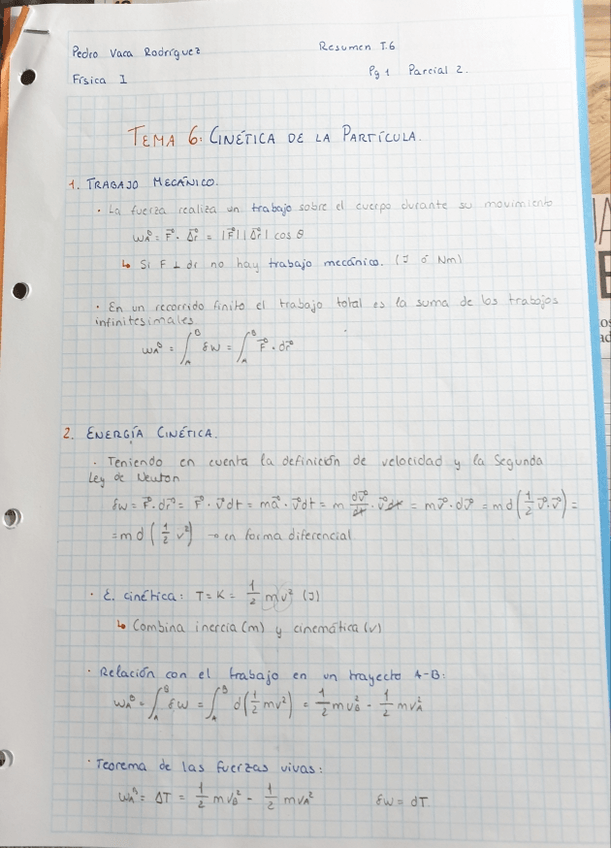 Pedro Vaca Rodríguez
Resumen T.6
Física I
Pg 1 Parcial 2.
TEMA 6: CINÉTICA DE LA PARTÍCULA.
1. TRABAJO MECÁNICO.
· La fuerza realiza un trabajo sobre el cuerpo durante su movimiento
W_A^B = F⃗ · Δr⃗ = |F⃗| |Δr⃗| cos θ
↳ Si F ⊥ dr no hay trabajo mecánico. (J ó Nm)
· En un recorrido finito el trabajo total es la suma de los trabajos
infinitesimales
W_A^B = ∫_A^B δW = ∫_A^B F⃗ · dr⃗
2. ENERGÍA CINÉTICA.
· Teniendo en cuenta la definición de velocidad y la Segunda
Ley de Newton
δW = F⃗ · dr⃗ = F⃗ · v⃗ dt = ma⃗ · v⃗ dt = m dv⃗/dt · v⃗ dt = mv⃗ · dv⃗ = md(1/2 v⃗ · v⃗) =
= md(1/2 v²) → en forma diferencial
· E. cinética: T = K = 1/2 mv² (J)
↳ Combina inercia (m) y cinemática (v)
· Relación con el trabajo en un trayecto A-B:
W_A^B = ∫_A^B δW = ∫_A^B d(1/2 mv²) = 1/2 mv_B² - 1/2 mv_A²
· Teorema de las fuerzas vivas:
W_A^B = ΔT = 1/2 mv_B² - 1/2 mv_A² δW = dT